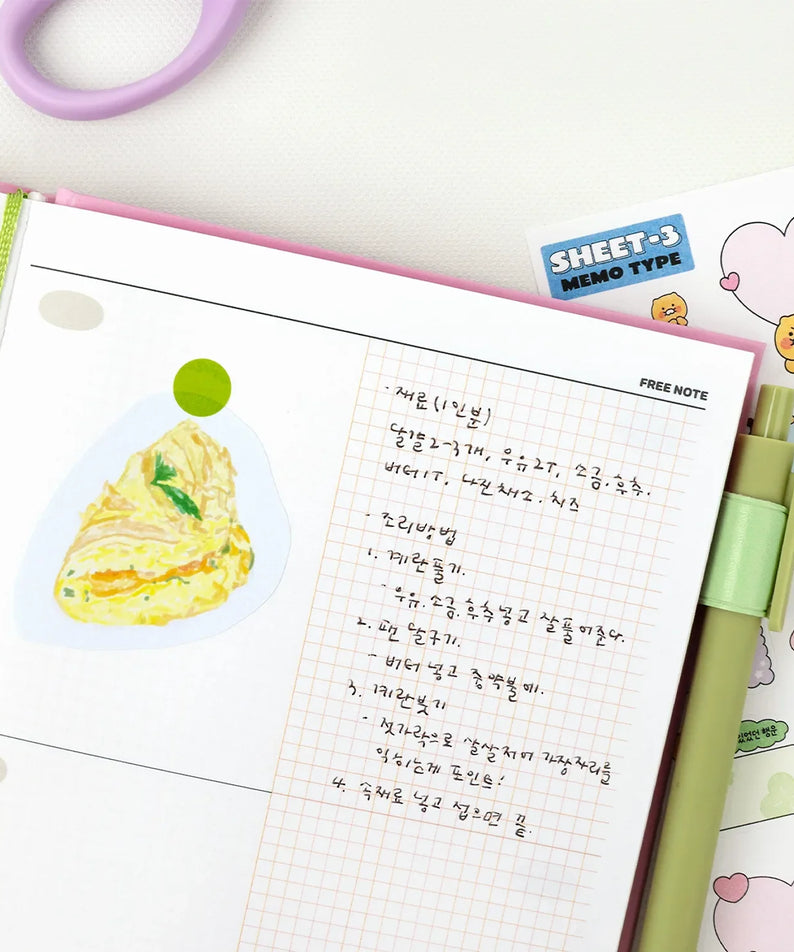 SHEET-3
MEMO TYPE
FREE NOTE
· 재료(1인분)
달걀 2-3개, 우유 2T, 소금.후추.
버터 1T, 다진채소. 치즈
· 조리방법
1. 계란풀기.
- 우유.소금.후추넣고 잘풀어준다.
2. 팬 달구기.
- 버터 넣고 중약불에.
3. 계란붓기
- 젓가락으로 살살저어 가장자리를
익히는게 포인트!
4. 속재료 넣고 접으면 끝.
있었던 행운